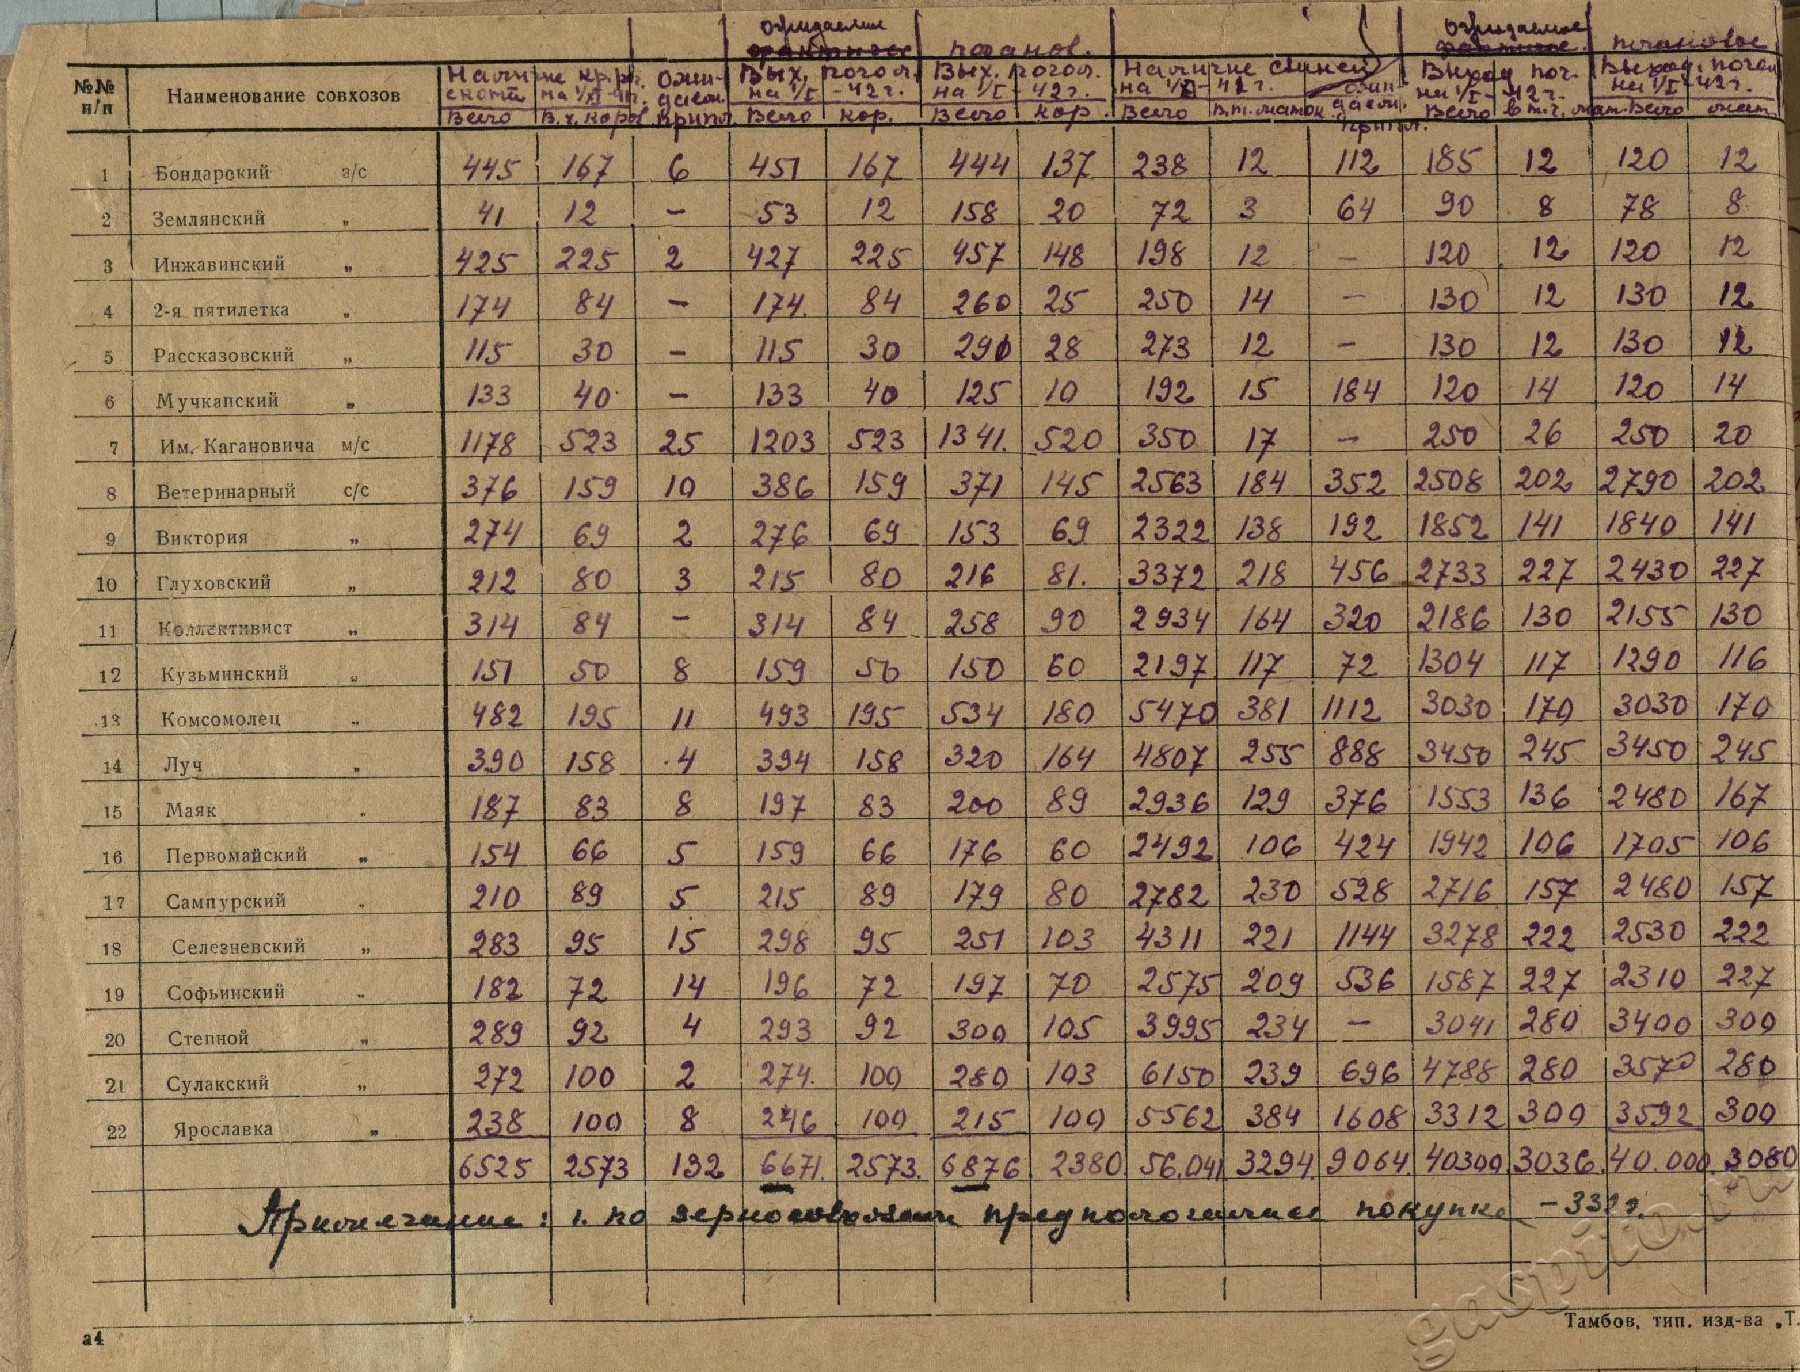 ожидаемое ожидаемое
фактическ. планов. фактическ. плановое
№№ п/п Наименование совхозов Наличие кр. рог. скота на 1/XI-41г. Ожидаем. припл. Вых. погол. на 1/I-42г. Вых. погол. на 1/I-42г. Наличие свиней на 1/XI ожидаем. припл. Выход пог. на 1/I-42г. Выход. погол на 1/I-42г.
всего в.ч. коров всего кор. всего кор. всего в.т. маток всего в т.ч. мат. всего мат.
1 Бондарский з/с 445 167 6 451 167 444 137 238 12 112 185 12 120 12
2 Землянский „ 41 12 – 53 12 158 20 72 3 64 90 8 78 8
3 Инжавинский „ 425 225 2 427 225 457 148 198 12 – 120 12 120 12
4 2-я пятилетка „ 174 84 – 174. 84 260 25 250 14 – 130 12 130 12
5 Рассказовский „ 115 30 – 115 30 290 28 273 12 – 130 12 130 12
6 Мучкапский „ 133 40 – 133 40 125 10 192 15 184 120 14 120 14
7 Им. Кагановича м/с 1178 523 25 1203 523 1341. 520 350 17 – 250 26 250 20
8 Ветеринарный с/с 376 159 10 386 159 371 145 2563 184 352 2508 202 2790 202
9 Виктория „ 274 69 2 276 69 153 69 2322 138 192 1852 141 1840 141
10 Глуховский „ 212 80 3 215 80 216 81. 3372 218 456 2733 227 2430 227
11 Коллективист „ 314 84 – 314 84 258 90 2934 164 320 2186 130 2155 130
12 Кузьминский „ 151 50 8 159 50 150 60 2197 117 72 1304 117 1290 116
13 Комсомолец „ 482 195 11 493 195 534 180 5470 381 1112 3030 170 3030 170
14 Луч „ 390 158 4 394 158 320 164 4807 255 888 3450 245 3450 245
15 Маяк „ 187 83 8 197 83 200 89 2936 129 376 1553 136 2480 167
16 Первомайский „ 154 66 5 159 66 176 60 2492 106 424 1942 106 1705 106
17 Сампурский „ 210 89 5 215 89 179 80 2782 230 528 2716 157 2480 157
18 Селезневский „ 283 95 15 298 95 251 103 4311 221 1144 3278 222 2530 222
19 Софьинский „ 182 72 14 196 72 197 70 2575 209 536 1587 227 2310 227
20 Степной „ 289 92 4 293 92 300 105 3995 234 – 3041 280 3400 300
21 Сулакский „ 272 100 2 274. 100 280 103 6150 239 696 4788 280 3570 280
22 Ярославка „ 238 100 8 246 100 215 100 5562 384 1608 3312 300 3592 300
6525 2573 132 6671. 2573. 6876 2380. 56.041 3294. 9064. 40300 3036. 40.000. 3080
Примечание: 1. по зерносовхозам предположительно покупка – 332 г.
а4 Тамбов, тип. изд-ва „Т.
gaspito.ru